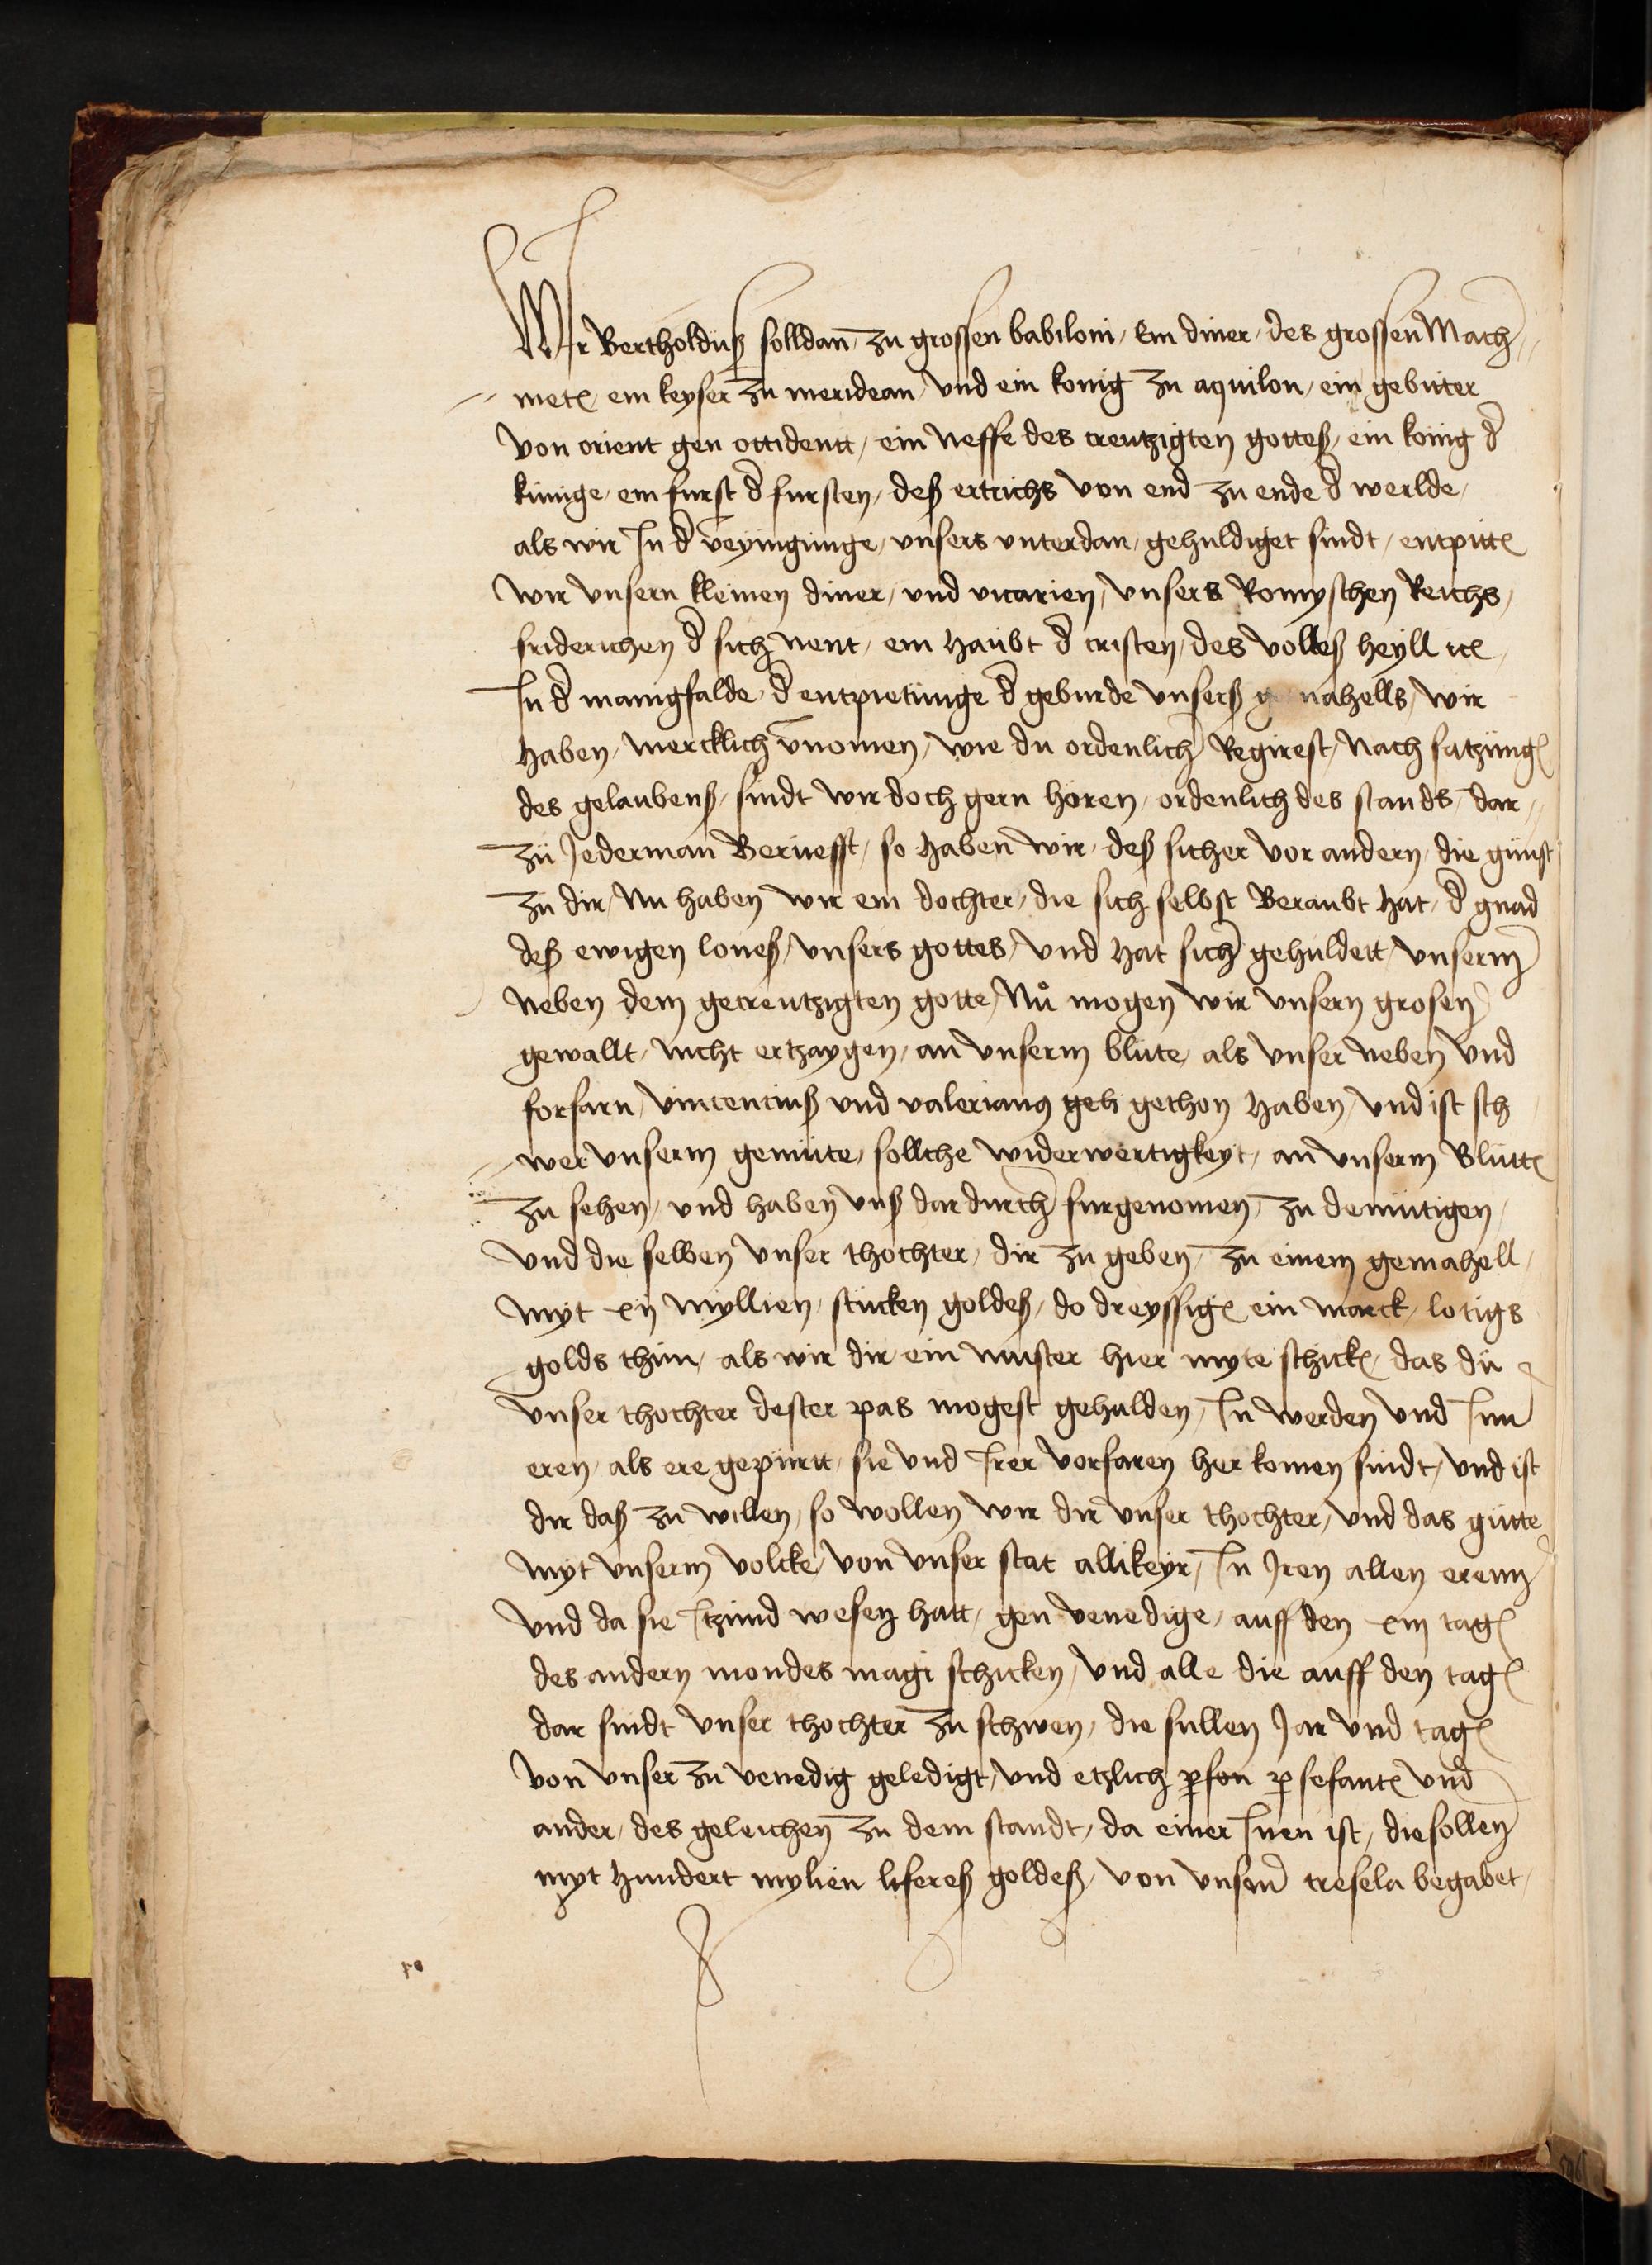 Wir Bertholduß solldan zu grossen babiloni / Ein diner / des grossen Mach
metß ein keyser zu meridean / vnd ein konig zu aquilon / ein gebiter
von orient gen ottident / ein Neffe des creutzigten gotteß / ein konig d̄
kunige / ein furst d̄ fursten / deß ertrichs von end zu ende d̄ werlde /
als wir In d̄ v̄eynigunge / vnsers vnterdan / gehuldiget sindt / entpittē
Wir vnsern kleinen diner / vnd vicarien / vnsers Romyschen Reichs /
friderichen d̄ sich nent / ein Haubt d̄ cristen / des volkeß heyll etc
In d̄ manigfalde / d̄ entpietunge d̄ geburde vnserß nahells / wir
Haben / mercklich v̄nomen / wie du ordenlich Regirest / Nach satzung
des gelaubenß / sindt wir doch gern horen / ordenlich des stands / dar
zu Jederman Berüefft / so haben wir / deß sicher vor andern / die gunst
zu dir / Nu haben wir ein dochter / die sich selbst Beraubt hat / d̄ gnad
deß ewigen loneß / vnsers gottes / vnd hat sich gehuldett / vnserm
Neben dem gecreutzigten gotte / Nů mogen wir vnsern grosen
gewallt / nicht ertzaygen / an vnserm blute / als vnser neben vnd
forfarn / vincentiuß vnd valerianus geh gethon haben / vnd ist sch
wer vnserm gemüte / sollche widerwertigkeyt / an vnserm Bluttē
zu sehen / vnd haben vnß dardurch furgenomen / zu demutigen /
vnd die selben vnser thochter / dir zu geben / zu einem gemahell /
myt xij myllien / stucken goldeß / do dreyssigē ein marck / lotigs
golds thun / als wir dir ein muster hier myte schickē / das du
vnser thochter dester pas mogest gehalden / In werden vnd Inn
eren / als ere gepürtt / sie vnd Irer vorfaren her komen sindt / vnd ist
dir daß zu willen / so wollen wir dir vnser thochter / vnd das gutte
myt vnserm volcke / von vnser stat allikeyr / In Jren allen erenn
vnd da sie Itzund wesen hatt / gen venedige / auff den xiij tag
des andern mondes magi schicken / vnd alle die auff den tag
dar sindt vnser thochter zu schwen / die sullen Jar vnd tag
von vnser zu venedig geledigt / vnd etzlich p̱son p̱sefantē vnd
ander / des geleichen zu dem standt / da einer Inen ist / die sollen
myt hundert mylien lifereß goldeß / von vnserm tresela begabet /